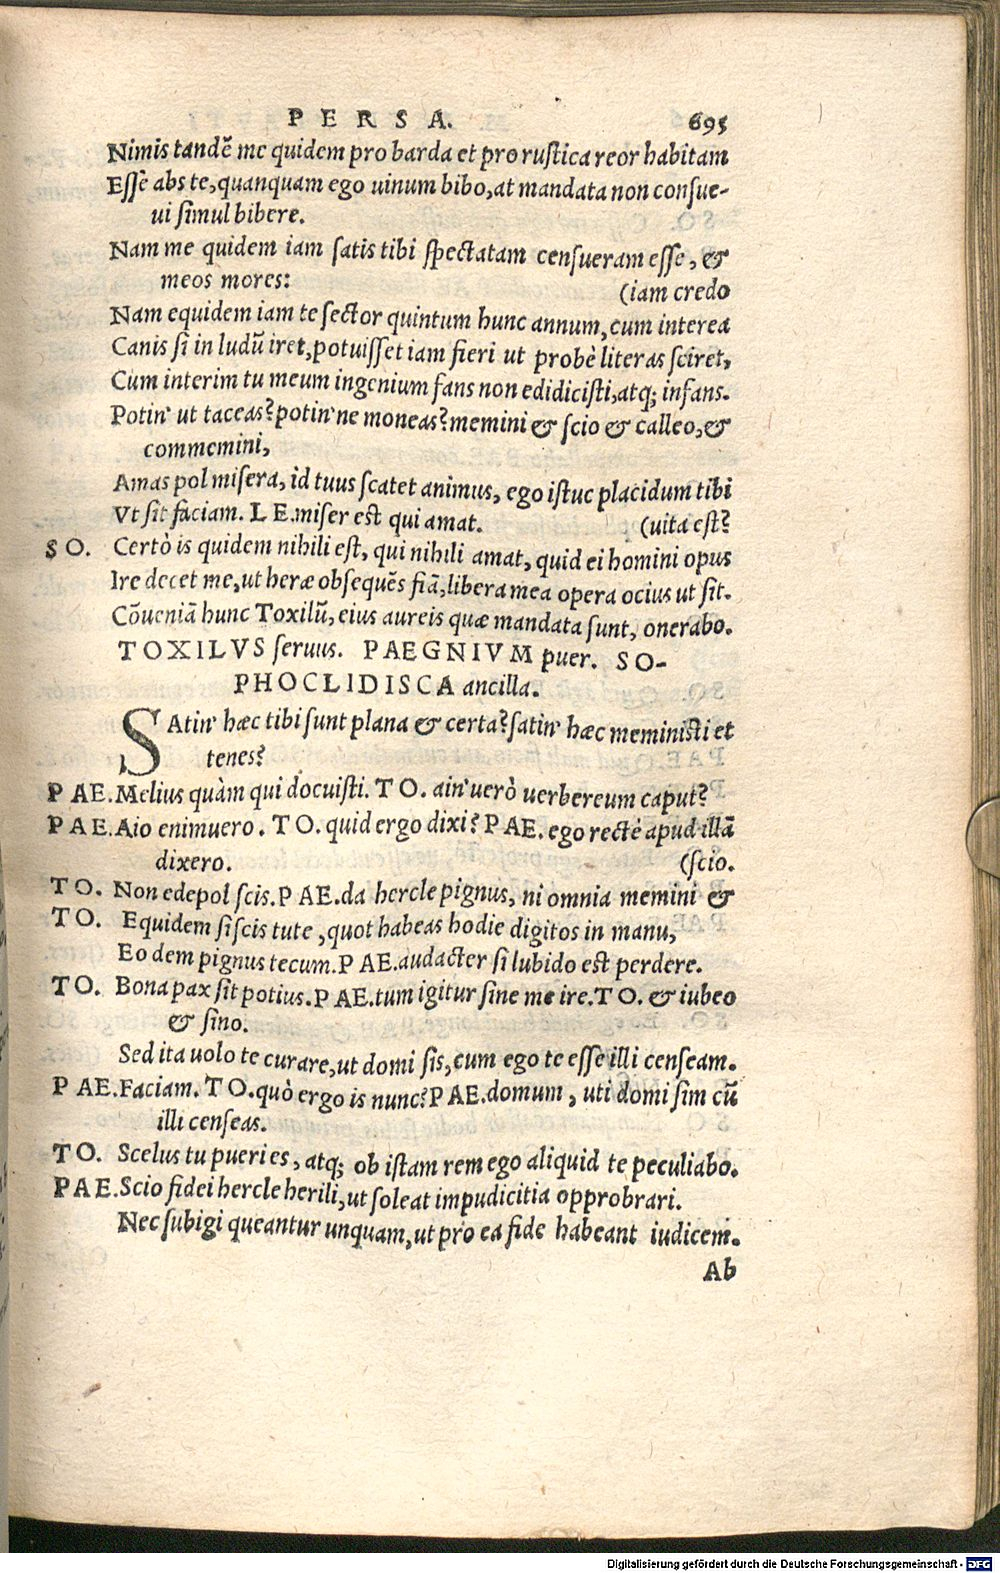 PERSA. 695
Nimis tandẽ me quidem pro barda et pro rustica reor habitam
Esse abs te, quanquam ego uinum bibo, at mandata non consue-
ui simul bibere.
Nam me quidem iam satis tibi spectatam censueram esse, &
meos mores: (iam credo
Nam equidem iam te sector quintum hunc annum, cum interea
Canis si in ludũ iret, potuisset iam fieri ut probè literas sciret,
Cum interim tu meum ingenium fans non edidicisti, atq; infans.
Potin' ut taceas? potin' ne moneas? memini & scio & calleo, &
commemini,
Amas pol misera, id tuus scatet animus, ego istuc placidum tibi
Vt sit faciam. LE. miser est qui amat. (uita est?
SO. Certò is quidem nihili est, qui nihili amat, quid ei homini opus
Ire decet me, ut heræ obsequẽs fiã, libera mea opera ocius ut sit.
Cõueniã hunc Toxilũ, eius aureis quæ mandata sunt, onerabo.
TOXILVS seruus. PAEGNIVM puer. SO-
PHOCLIDISCA ancilla.
SAtin' hæc tibi sunt plana & certa? satin' hæc meministi et
tenes?
PAE. Melius quàm qui docuisti. TO. ain' uerò uerbereum caput?
PAE. Aio enimuero. TO. quid ergo dixi? PAE. ego rectè apud illã
dixero. (scio.
TO. Non edepol scis. PAE. da hercle pignus, ni omnia memini &
TO. Equidem si scis tute, quot habeas hodie digitos in manu,
Eo dem pignus tecum. PAE. audacter si lubido est perdere.
TO. Bona pax sit potius. PAE. tum igitur sine me ire. TO. & iubeo
& sino.
Sed ita uolo te curare, ut domi sis, cum ego te esse illi censeam.
PAE. Faciam. TO. quò ergo is nunc? PAE. domum, uti domi sim cũ
illi censeas.
TO. Scelus tu pueri es, atq; ob istam rem ego aliquid te peculiabo.
PAE. Scio fidei hercle herili, ut soleat impudicitia opprobrari.
Nec subigi queantur unquam, ut pro ea fide habeant iudicem.
Ab
Digitalisierung gefördert durch die Deutsche Forschungsgemeinschaft - DFG